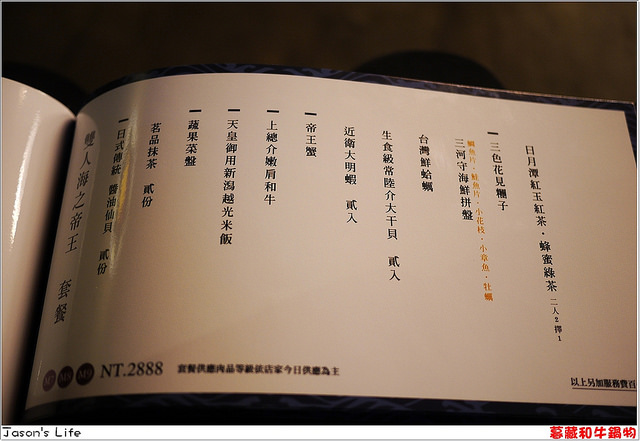 雙人海之帝王 套餐
日式傳統 醬油仙貝 貳份
茗品抹茶 貳份
蔬果菜盤
天皇御用新潟越光米飯
上總介嫩肩和牛
帝王蟹
近衛大明蝦 貳入
生食級常陸介大干貝 貳入
台灣鮮蛤蠣
三河守海鮮拼盤
鯛魚片．鮭魚片．小花枝．小章魚．牡蠣
三色花見糰子
日月潭紅玉紅茶．蜂蜜綠茶 二人2擇1
NT.2888
套餐供應肉品等級依店家今日供應為主
以上另加服務費百
Jason's Life
幕藏和牛鍋物